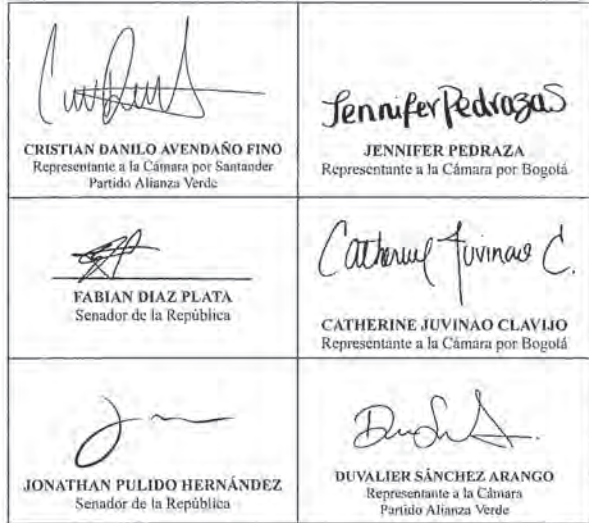 CRISTIAN DANILO AVENDAÑO FINO
Representante a la Cámara por Santander
Partido Alianza Verde
Jennifer Pedraza S
JENNIFER PEDRAZA
Representante a la Cámara por Bogotá
FABIAN DIAZ PLATA
Senador de la República
Catherine Juvinao C.
CATHERINE JUVINAO CLAVIJO
Representante a la Cámara por Bogotá
JONATHAN PULIDO HERNÁNDEZ
Senador de la República
DUVALIER SÁNCHEZ ARANGO
Representante a la Cámara
Partido Alianza Verde